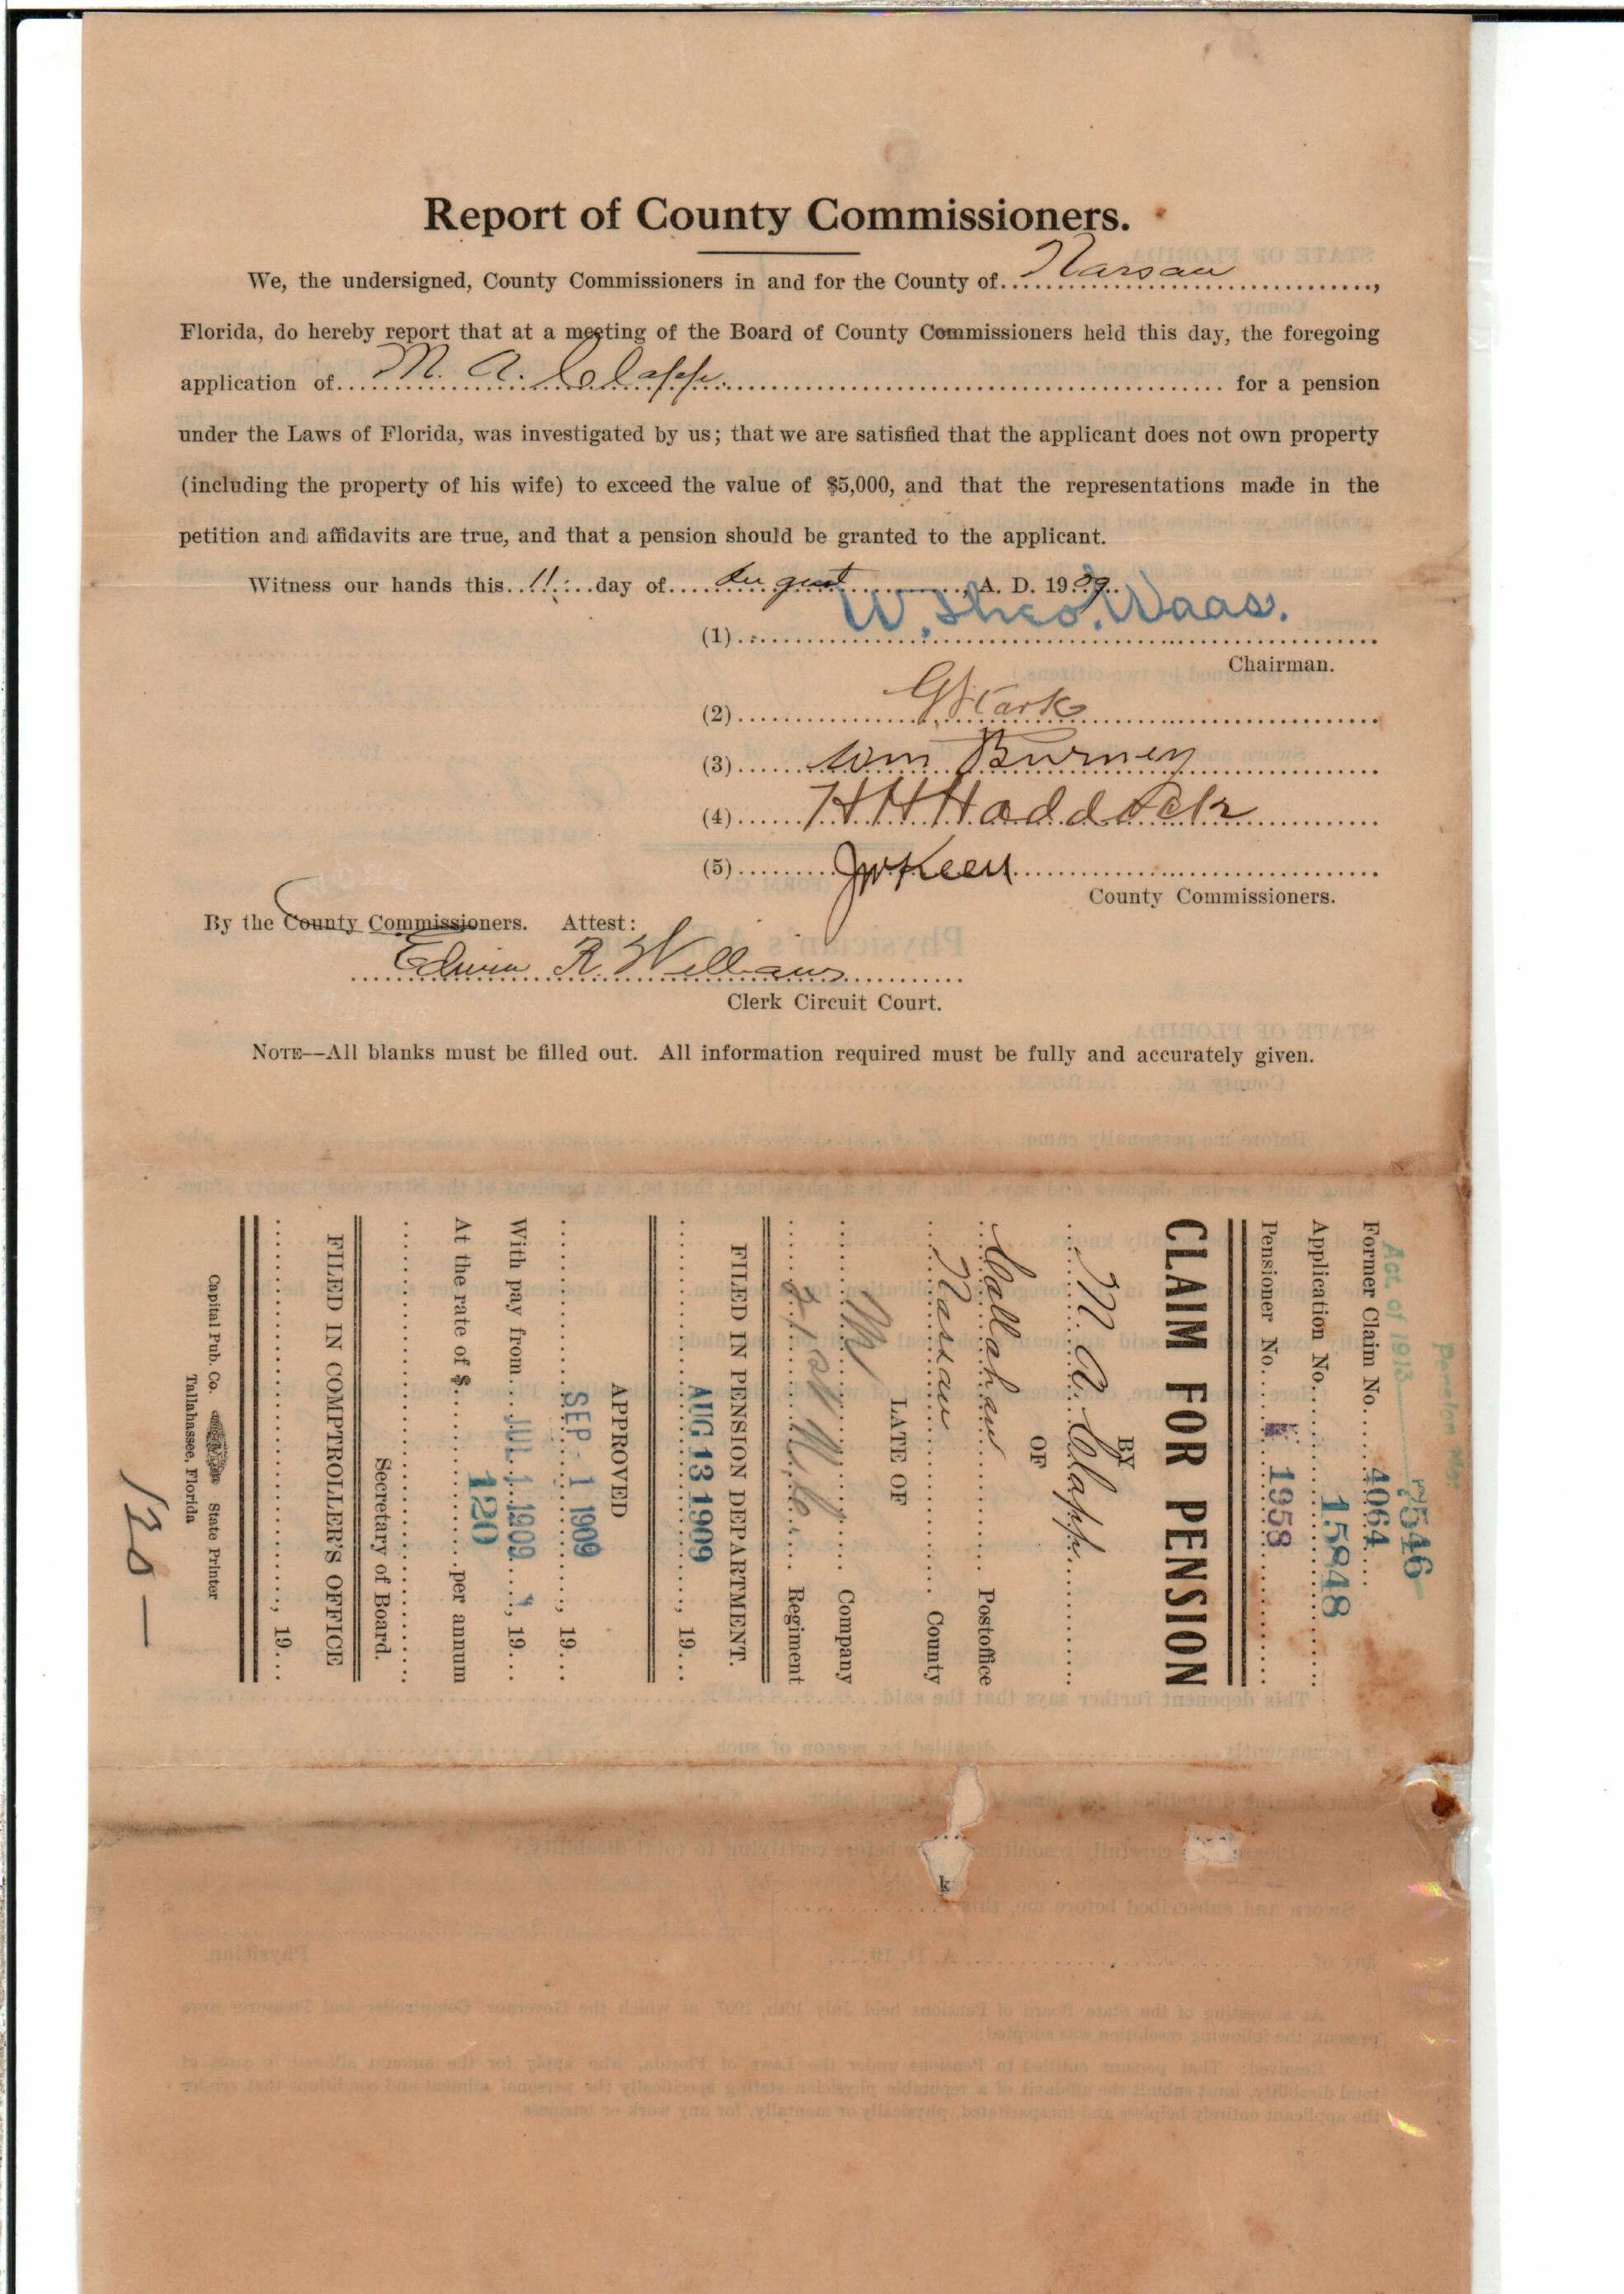 Report of County Commissioners.
We, the undersigned, County Commissioners in and for the County of Nassau,
Florida, do hereby report that at a meeting of the Board of County Commissioners held this day, the foregoing
application of M. A. Clapp. for a pension
under the Laws of Florida, was investigated by us; that we are satisfied that the applicant does not own property
(including the property of his wife) to exceed the value of $5,000, and that the representations made in the
petition and affidavits are true, and that a pension should be granted to the applicant.
Witness our hands this 11 day of August, A. D. 1909.
(1) W. Theo. Waas.
Chairman.
(2) G Stark
(3) Wm Burney
(4) H H Haddock
(5) JW Keen
County Commissioners.
By the County Commissioners. Attest:
Edwin R. Williams
Clerk Circuit Court.
NOTE—All blanks must be filled out. All information required must be fully and accurately given.
Act. of 1913
7546
Former Claim No. 4064
Application No. 15848
Pensioner No. 1958
CLAIM FOR PENSION
BY
M. A. Clapp.
OF
Callahan Postoffice
Nassau County
LATE OF
M Company
21st N.C. Regiment
FILED IN PENSION DEPARTMENT.
AUG 13 1909, 19
APPROVED
SEP - 1 1909, 19
With pay from JUL 1 1909, 19
At the rate of $ 120 per annum
Secretary of Board.
FILED IN COMPTROLLER'S OFFICE
, 19
Capital Pub. Co. State Printer
Tallahassee, Florida
120 —
k